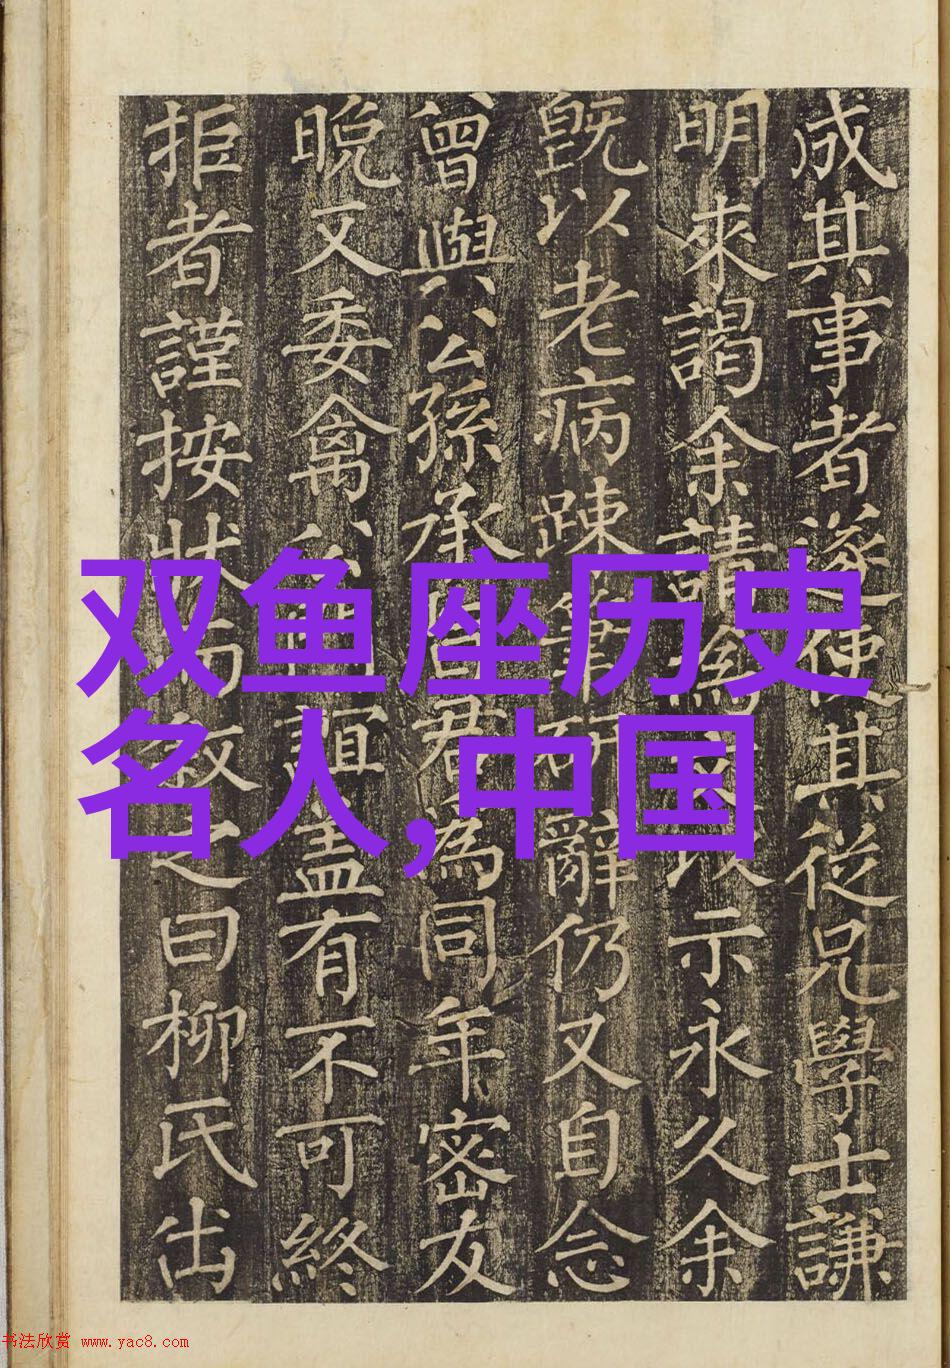 成其事者遂使其從兄學士謙
明來謁余請為以示永久余
既以老病踈筆研辭仍又自念
曾與公孫承旨君為同年密友
晚又委禽公誼盖有不可終
拒者謹按狀而敘之曰柳氏出
双鱼座历史
名人,中国
书法欣赏 www.yac8.com